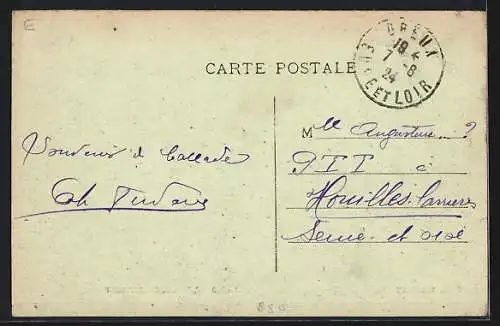 E
DREUX
19 4
7 - 8
24
EURE ET LOIR
CARTE POSTALE
Mlle Augustine
PTT à
Houilles-Carrières
Seine et Oise
Souvenir de
Ch